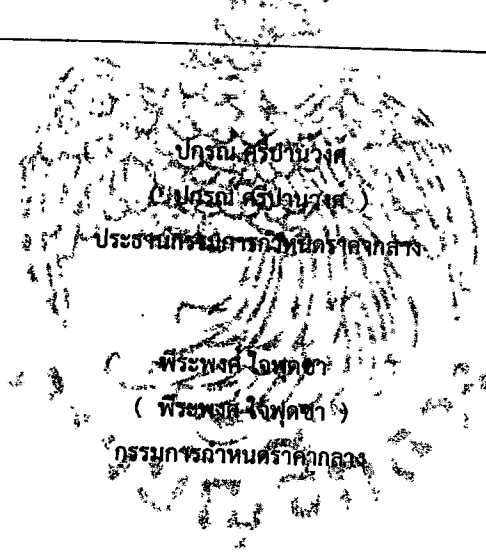 ปกรณ์ ศรีปานวงศ์
( ปกรณ์ ศรีปานวงศ์ )
ประธานกรรมการกำหนดราคากลาง
พีระพงศ์ ใจพุดซา
( พีระพงศ์ ใจพุดซา )
กรรมการกำหนดราคากลาง